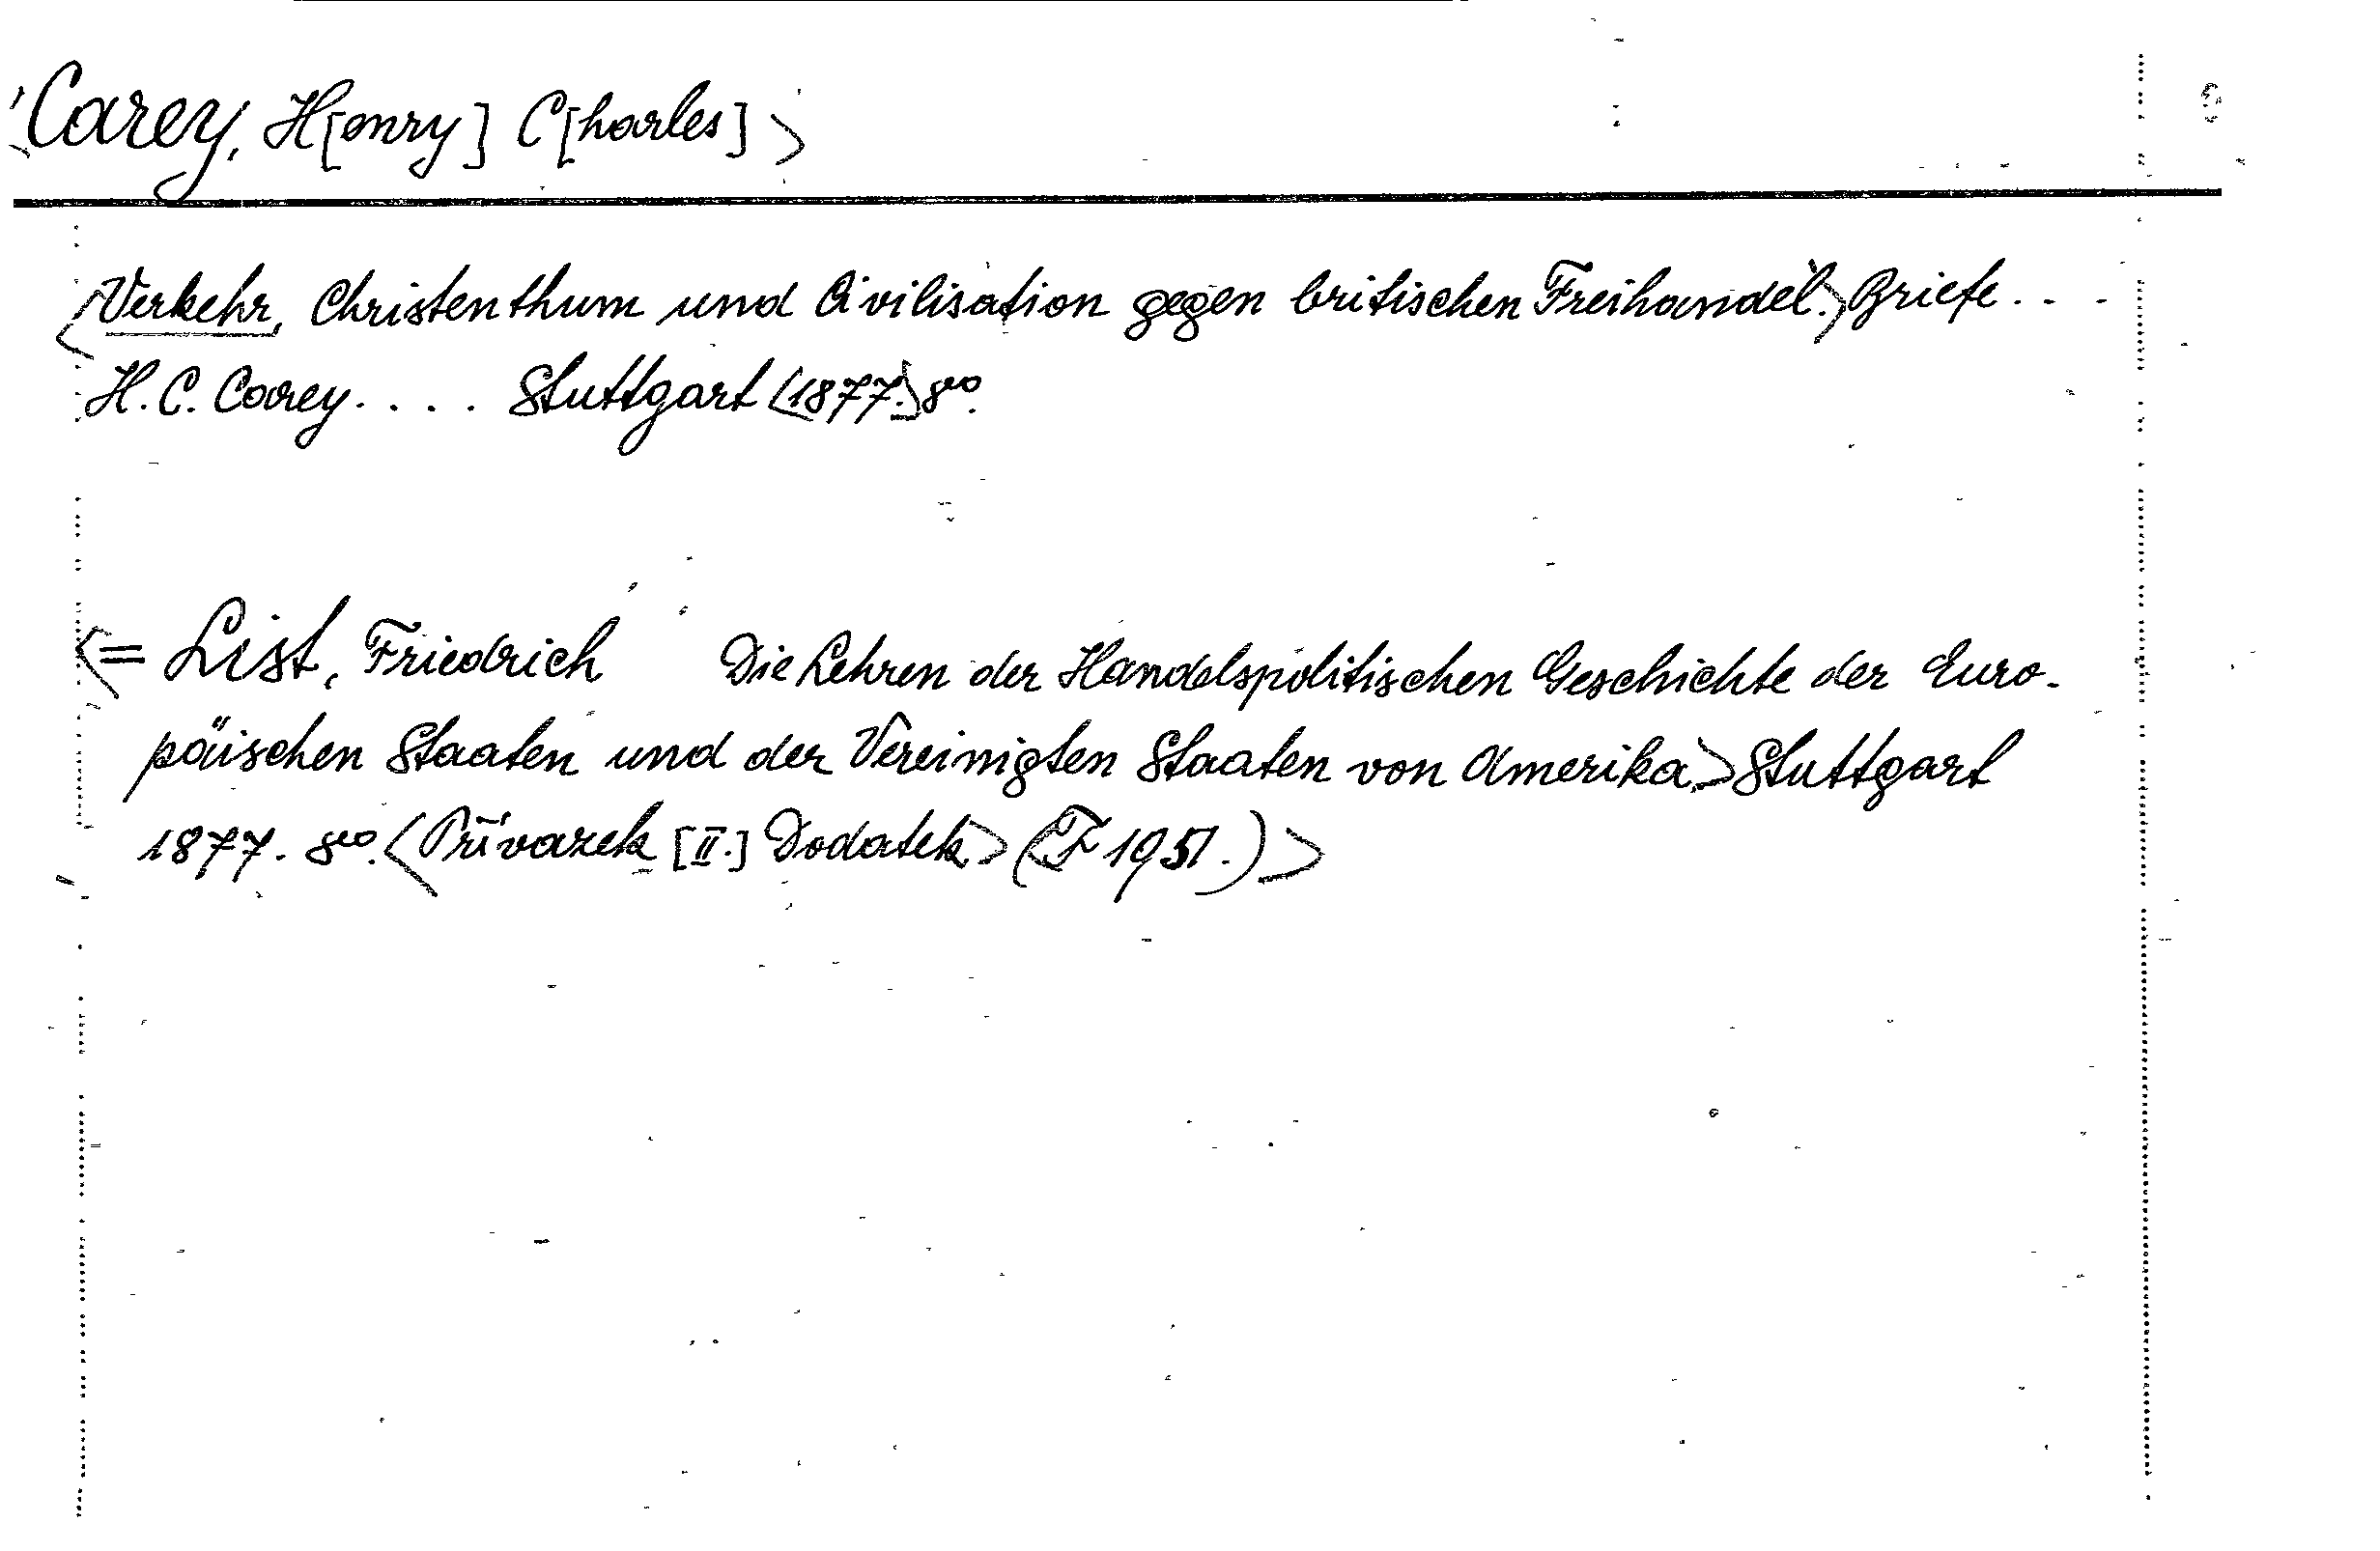 <Carey, H[enry] C[harles]>
<Verkehr, Christenthum und Civilisation gegen britischen Freihandel.> Briefe...
H. C. Carey.... Stuttgart <1877.> 8vo.
<= List, Friedrich Die Lehren der Handelspolitischen Geschichte der Euro-
päischen Staaten und der Vereinigten Staaten von Amerika.> Stuttgart
1877. 8vo. <Přívazek [II.] Dodatek> (F 1951.)>